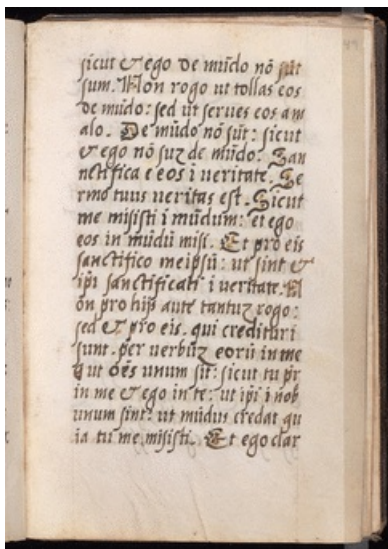 sicut & ego de mūdo nō sūt
sum. Non rogo ut tollas eos
de mūdo: sed ut serues eos a m
alo. De mūdo nō sūt: sicut
& ego nō suz de mūdo. San
nctifica e eos i ueritate. Se
rmo tuus ueritas est. Sicut
me misisti i mūdum: et ego
eos in mūdū misi. Et pro eis
sanctifico meipsū: ut sint &
ipi sanctificati i ueritate. N
on pro hijs aute tantuz rogo:
sed & pro eis. qui credituri
sunt. per uerbūz eorū in me
ut oēs unum sīt: sicut tu pr
in me & ego in te: ut ipi i nob
unum sint: ut mūdus credat qu
ia tu me misisti. Et ego clar